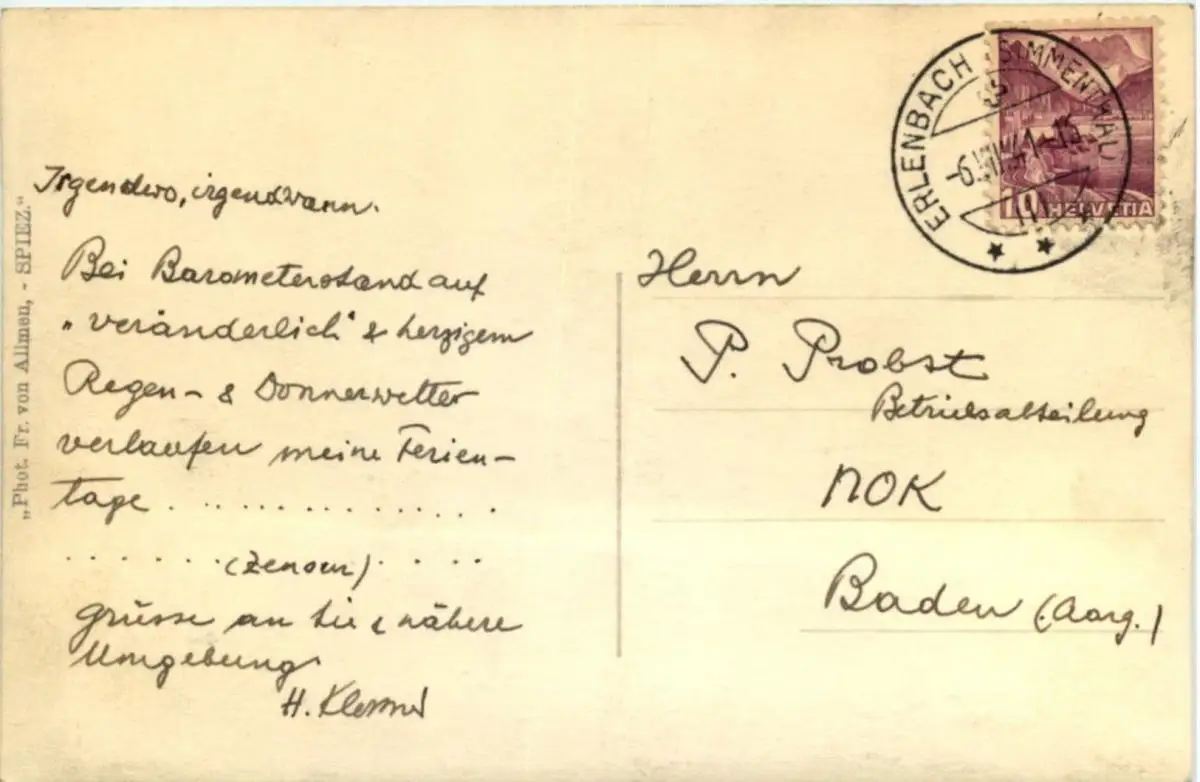 „Phot. Fr. von Allmen, - SPIEZ."
Irgendwo, irgendwann.
Bei Barometerstand auf
„veränderlich" & herzigem
Regen- & Donnerwetter
verlaufen meine Ferien-
tage . . . . . . . . . . . . . . .
. . . . . . . (Zensur) . . . .
Grüsse an Sie & nähere
Umgebung
H.
ERLENBACH (SIMMENTHAL)
-6. 41-15
10 HELVETIA
Herrn
P. Probst
Betriebsabteilung
NOK
Baden (Aarg.)